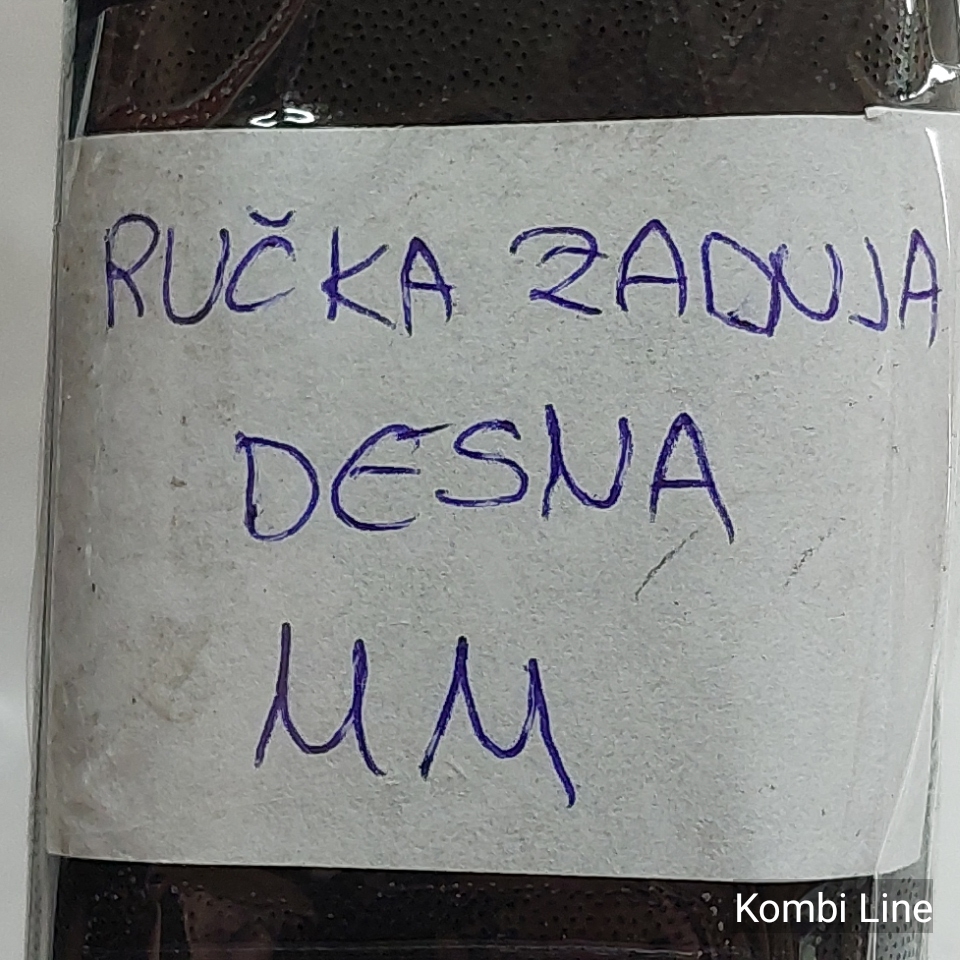 RUČKA ZADNJA
DESNA
MM
Kombi Line